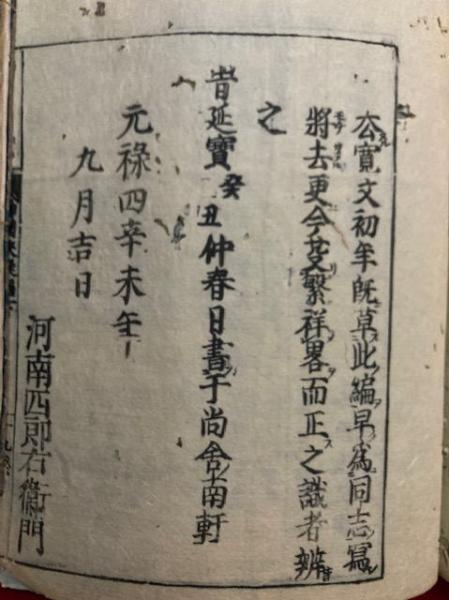 玄寛文初年既草此編早為同志寫
將去更今芟繁祥畧而正之識者辨
之
旹延寶癸丑仲春日書于尚舎南軒
元祿四辛未年
九月吉日
河南四郎右衛門